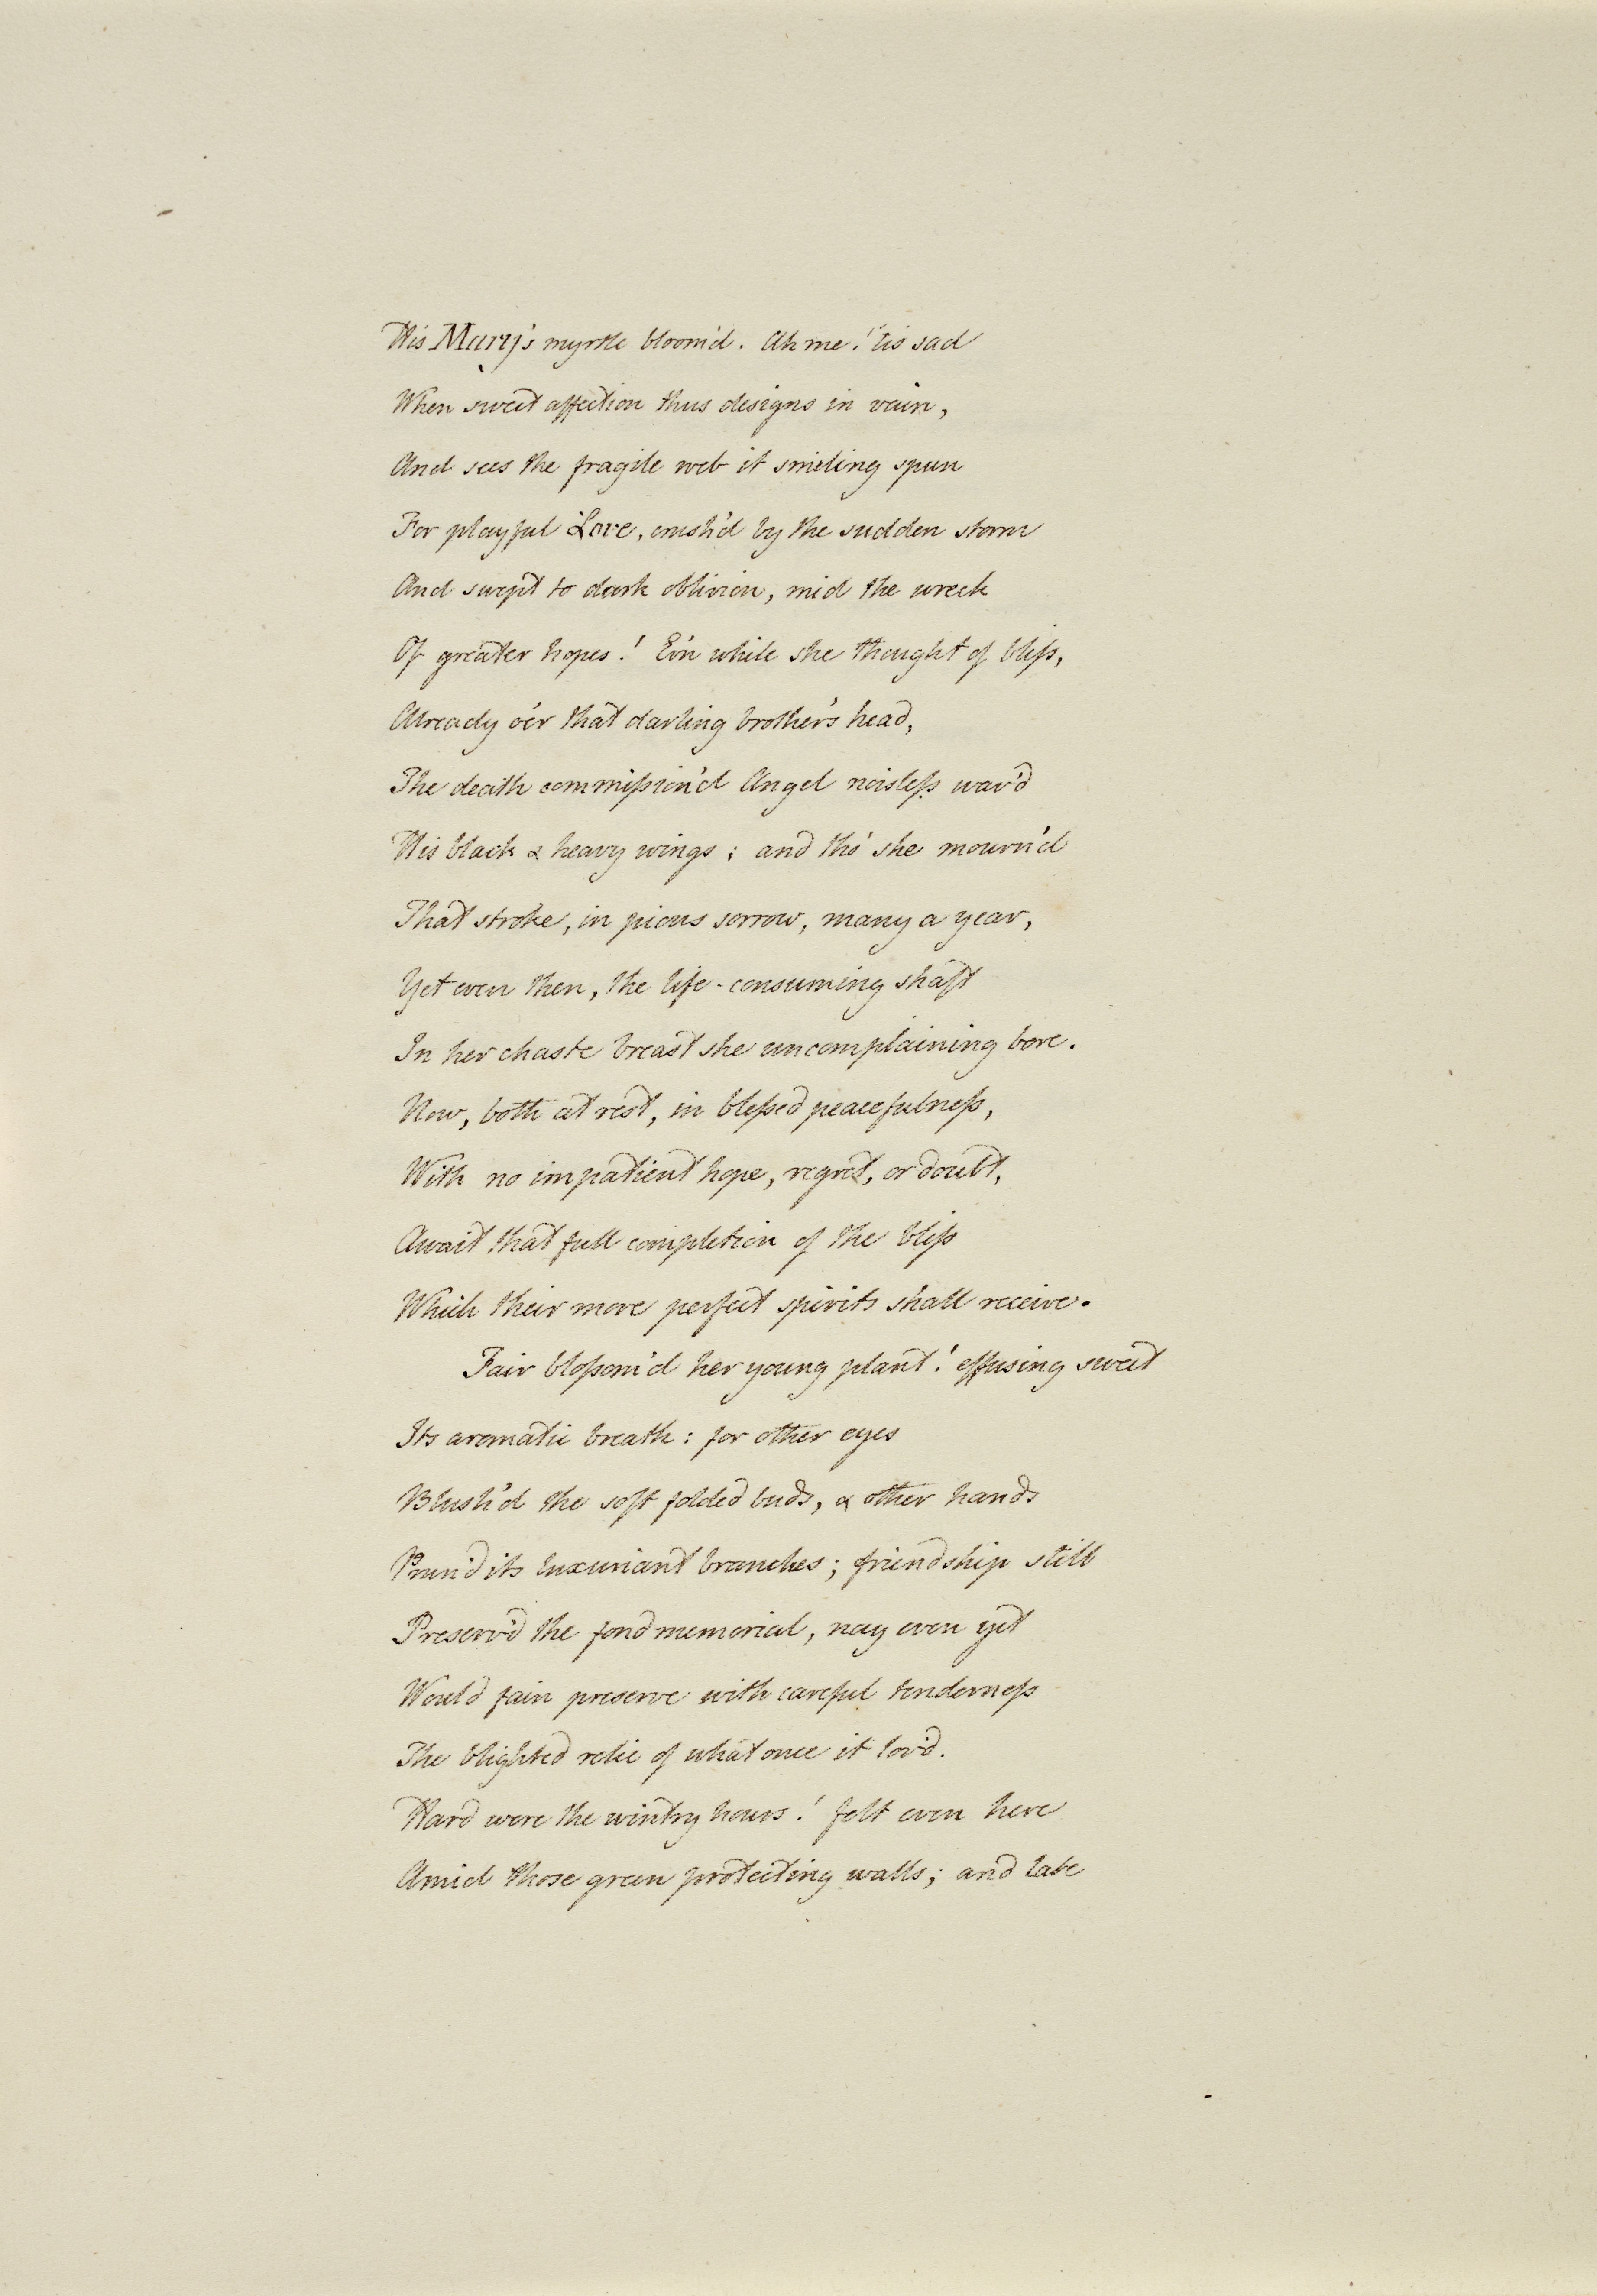 His Mary's myrtle bloom'd. Ah me! 'tis sad
When sweet affection thus designs in vain,
And sees the fragile web it smiling spun
For playful Love, crush'd by the sudden storm
And swept to dark oblivion, mid the wreck
Of greater hopes! Ev'n while she thought of bliſs,
Already o'er that darling brother's head,
The death commiſsion'd Angel noisleſs wav'd
His black & heavy wings; and tho' she mourn'd
That stroke, in pious sorrow, many a year,
Yet even then, the life-consuming shaft
In her chaste breast she uncomplaining bore.
Now, both at rest, in bleſsed peacefulneſs,
With no impatient hope, regret, or doubt,
Await that full completion of the bliſs
Which their more perfect spirits shall receive.
Fair bloſsom'd her young plant! effusing sweet
Its aromatic breath: for other eyes
Blush'd the soft folded buds, & other hands
Prun'd its luxuriant branches; friendship still
Preserv'd the fond memorial, nay even yet
Would fain preserve with careful tenderneſs
The blighted relic of what once it lov'd.
Hard were the wintry hours! felt even here
Amid those green protecting walls; and late